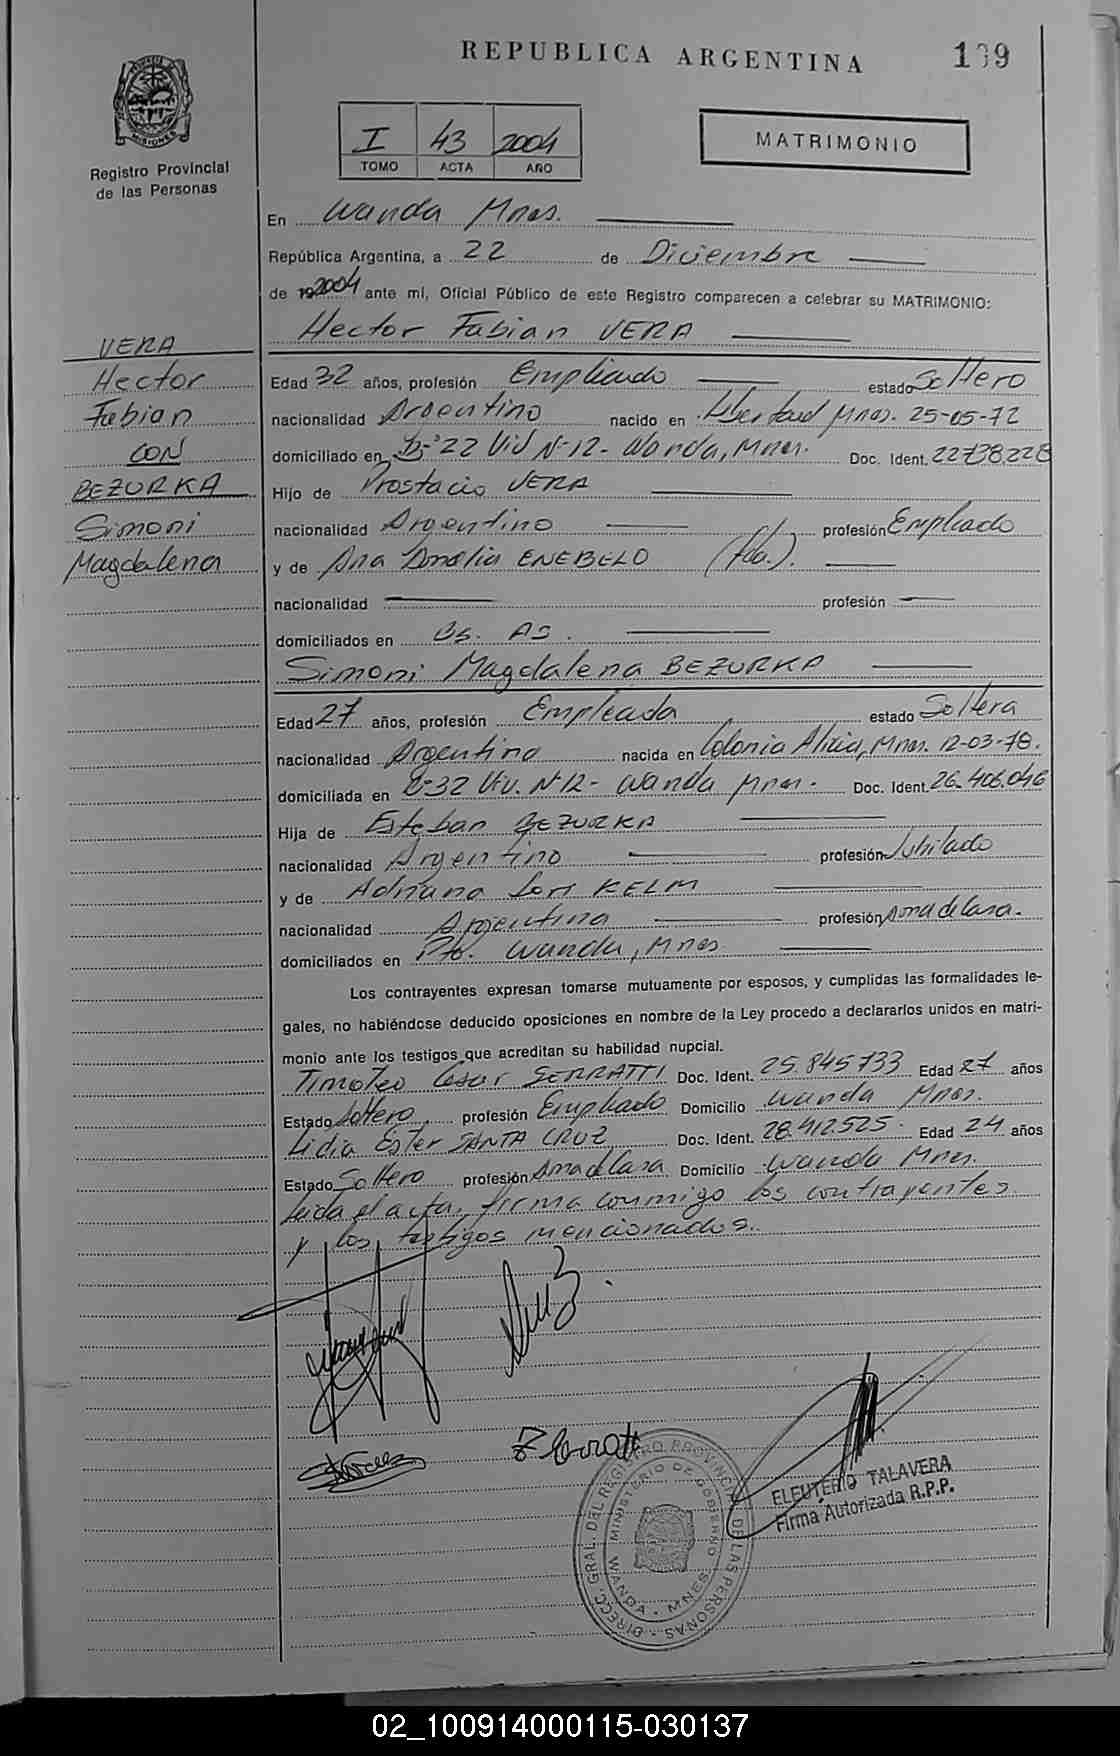 REPUBLICA ARGENTINA
139
MISIONES
Registro Provincial
de las Personas
I 43 2004
TOMO ACTA AÑO
MATRIMONIO
En Wanda Mnes.
República Argentina, a 22 de Diciembre
de 2004 ante mí, Oficial Público de este Registro comparecen a celebrar su MATRIMONIO:
Hector Fabian VERA
VERA
Hector
Fabian
CON
BEZURKA
Simoni
Magdalena
Edad 32 años, profesión Empleado estado Soltero
nacionalidad Argentino nacido en Libertad Mnes. 25-05-72
domiciliado en B-22 Viv N-12- Wanda, Mnes. Doc. Ident. 22.738.228
Hijo de Prostacio VERA
nacionalidad Argentino profesión Empleado
y de Ana Amelia ENEBELO (fda.).
nacionalidad profesión
domiciliados en Bs. As.
Simoni Magdalena BEZURKA
Edad 27 años, profesión Empleada estado Soltera
nacionalidad Argentina nacida en Colonia Alicia, Mnes. 12-03-78.
domiciliada en Viv. N-12- Wanda Mnes. Doc. Ident. 26.406.046
Hija de Esteban BEZURKA
nacionalidad Argentino profesión Jubilado
y de Adriana KELM
nacionalidad Argentina profesión Ama de Casa.
domiciliados en Pto. Wanda, Mnes
Los contrayentes expresan tomarse mutuamente por esposos, y cumplidas las formalidades le-
gales, no habiéndose deducido oposiciones en nombre de la Ley procedo a declararlos unidos en matri-
monio ante los testigos que acreditan su habilidad nupcial.
Timoteo Cesar SERRATTI Doc. Ident. 25.845733 Edad 27 años
Estado Soltero profesión Empleado Domicilio Wanda Mnes.
Lidia Ester SANTA CRUZ Doc. Ident. 28.412.525. Edad 24 años
Estado Soltero profesión Ama de Casa Domicilio Wanda Mnes.
Leida el acta, firma conmigo los contrayentes
y los testigos mencionados.
ELEUTERIO TALAVERA
Firma Autorizada R.P.P.
DIRECC. GRAL. DEL REGISTRO PROVINCIAL DE LAS PERSONAS
MINISTERIO DE GOBIERNO
WANDA - MNES.
02_100914000115-030137